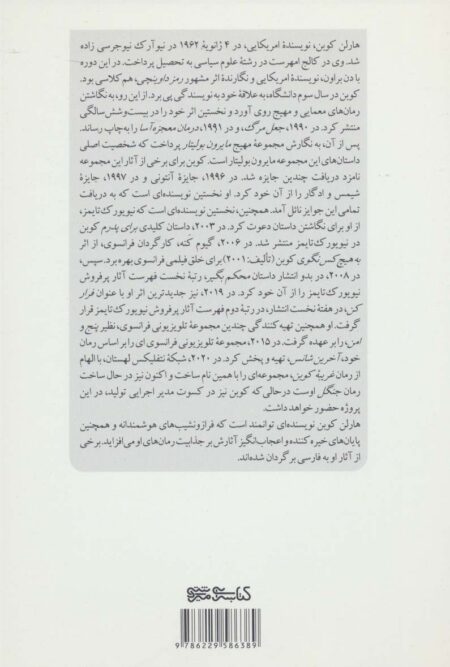 هارلن کوبن، نویسندهٔ امریکایی، در ۴ ژانویهٔ ۱۹۶۲ در نیوآرک نیوجرسی زاده
شد. وی در کالج امهرست در رشتهٔ علوم سیاسی به تحصیل پرداخت. در این دوره
با دن براون، نویسندهٔ امریکایی و نگارندهٔ اثر مشهور رمز داوینچی، هم‌کلاسی بود.
کوبن در سال سوم دانشگاه، به علاقهٔ خود به نویسندگی پی برد. از این رو، به نگاشتن
رمان‌های معمایی و مهیج روی آورد و نخستین اثر خود را در بیست‌وشش سالگی
منتشر کرد. در ۱۹۹۰، جعل مرگ، و در ۱۹۹۱، درمان معجزه‌آسا را به چاپ رساند.
پس از آن، به نگارش مجموعهٔ مهیج مایرون بولیتار پرداخت که شخصیت اصلی
داستان‌های این مجموعه مایرون بولیتار است. کوبن برای برخی از آثار این مجموعه
نامزد دریافت چندین جایزه شد. در ۱۹۹۶، جایزهٔ آنتونی و در ۱۹۹۷، جایزهٔ
شیمس و ادگار را از آن خود کرد. او نخستین نویسنده‌ای است که به دریافت
تمامی این جوایز نائل آمد. همچنین، نخستین نویسنده‌ای است که نیویورک تایمز،
از او برای نگاشتن داستان دعوت کرد. در ۲۰۰۳، داستان کلیدی برای پدرم کوبن
در نیویورک تایمز منتشر شد. در ۲۰۰۶، گیوم کنه، کارگردان فرانسوی، از اثر
به هیچ‌کس نگوی کوبن (تألیف: ۲۰۰۱) برای خلق فیلمی فرانسوی بهره برد. سپس،
در ۲۰۰۸، در بدو انتشار داستان محکم بگیر، رتبهٔ نخست فهرست آثار پرفروش
نیویورک تایمز را از آن خود کرد. در ۲۰۱۹، نیز جدیدترین اثر او با عنوان فرار
کن، در هفتهٔ نخست انتشار، در رتبهٔ دوم فهرست آثار پرفروش نیویورک تایمز قرار
گرفت. او همچنین تهیه کنندگی چندین مجموعهٔ تلویزیونی فرانسوی، نظیر پنج و
امن، را بر عهده گرفت. در ۲۰۱۵، مجموعهٔ تلویزیونی فرانسوی ای را بر اساس رمان
خود، آخرین شانس، تهیه و پخش کرد. در ۲۰۲۰، شبکهٔ نتفلیکس لهستان، با الهام
از رمان غریبهٔ کوبن، مجموعه‌ای را با همین نام ساخت و اکنون نیز در حال ساخت
رمان جنگل اوست درحالی که کوبن نیز در کسوت مدیر اجرایی تولید، در این
پروژه حضور خواهد داشت.
هارلن کوبن نویسنده‌ای توانمند است که فرازونشیب‌های هوشمندانه و همچنین
پایان‌های خیره کننده و اعجاب‌انگیز آثارش بر جذابیت رمان‌های او می‌افزاید. برخی
از آثار او به فارسی برگردان شده‌اند.
9 786229 586389